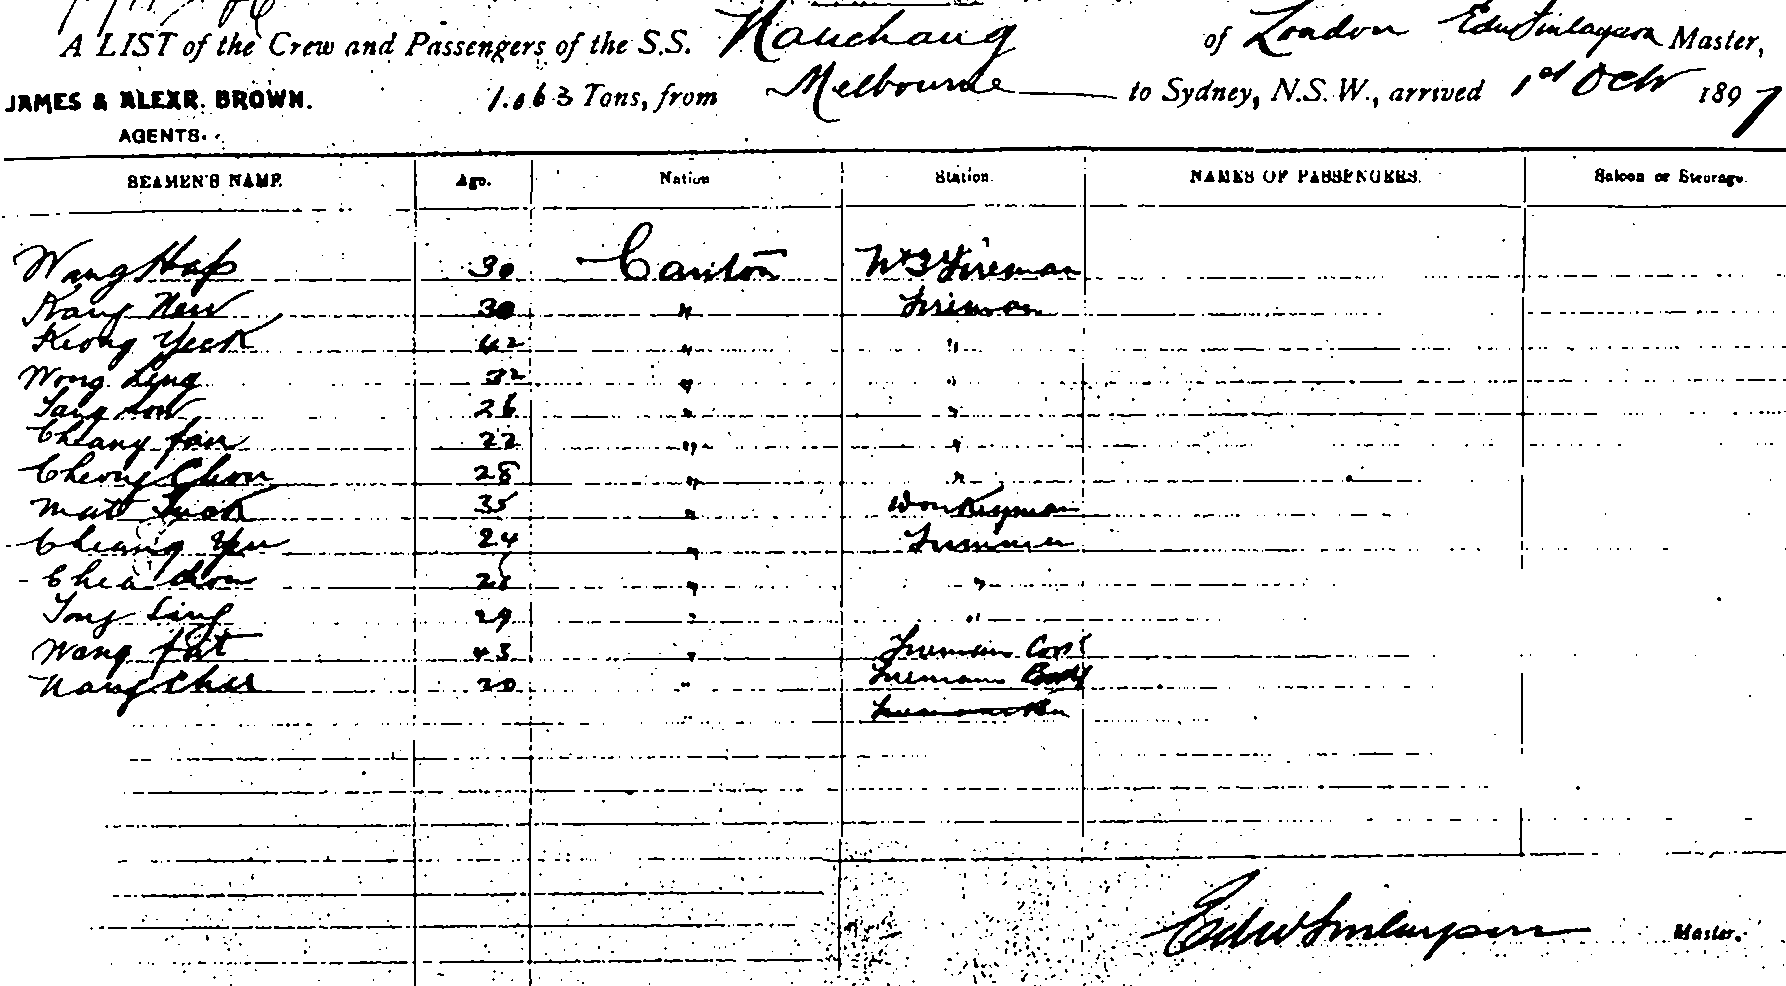 A LIST of the Crew and Passengers of the S.S. Nanchang of London Edw Finlayson Master,
JAMES & ALEXR. BROWN. 1.063 Tons, from Melbourne to Sydney, N.S.W., arrived 1st Oct 1897
AGENTS.
SEAMEN'S NAME. Age. Nation Station. NAMES OF PASSENGERS. Saloon or Steerage.
Wang Hap 30 Canton No 1 Fireman
Kang New 30 " Fireman
Keong Yeck 42 " "
Wong Ling 32 " "
Tang 26 " "
Cheang fan 22 " "
Cheong Chon 28 " "
Mat 35 " Donkeyman
Cheang Yeu 24 " Trimmer
Chea chon 28 " "
Tong Sing 29 " "
Wang fat 43 " Fireman Cook
Wang Char 20 " Firemans Boy
Edw Finlayson Master.